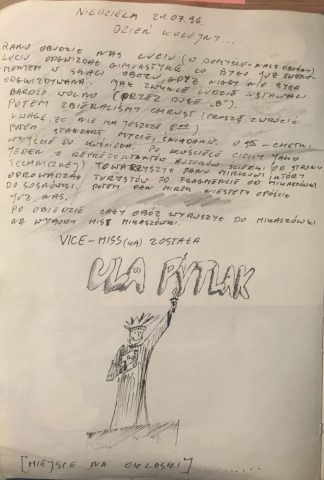 NIEDZIELA 21.07.96.
DZIEŃ KOLEJNY...
RANO OBUDZIŁ NAS LUCIU (W DOMYŚLE - NASZ OBOŹNY)
LUCIU ODGWIZDAŁ GIMNASTYKĘ CO BYŁO JUŻ
MENTEM W SKALI OBOZU, GDYŻ NIGDY NIE BYŁA
ODGWIZDYWANA. JAK ZWYKLE LUDZIE WSTAWALI
BARDZO WOLNO (PRZEZ DUŻE "B")
POTEM ZBIERALIŚMY CHRUST (PROSZĘ ZWRÓCIĆ
UWAGĘ, ŻE NIE MA JESZCZE 8 00)
POTEM STANDART MYCIE, ŚNIADANIE. O 9
WYJŚCIE DO KOŚCIOŁA. PO KOŚCIELE CICHY JAKO
JEDEN Z REPREZENTANTÓW AUTORÓW ŚCIEŻKI (OD STRONY
TECHNICZNEJ) TOWARZYSZYŁ PANU MIRKOWI KTÓRY
OPROWADZAŁ TURYSTÓW PO FRAGMENCIE OD MIKASZÓWKI
DO SOSNÓWKI. POTEM PAN MIREK NIESTETY OPUŚCIŁ
JUŻ NAS.
PO OBIEDZIE CAŁY OBÓZ WYRUSZYŁ DO MIKASZÓWKI
NA WYBORY MISS MIKASZÓWKI.
VICE-MISS ZOSTAŁA
ULA PYTLAK
[MIEJSCE NA OKLASKI].......